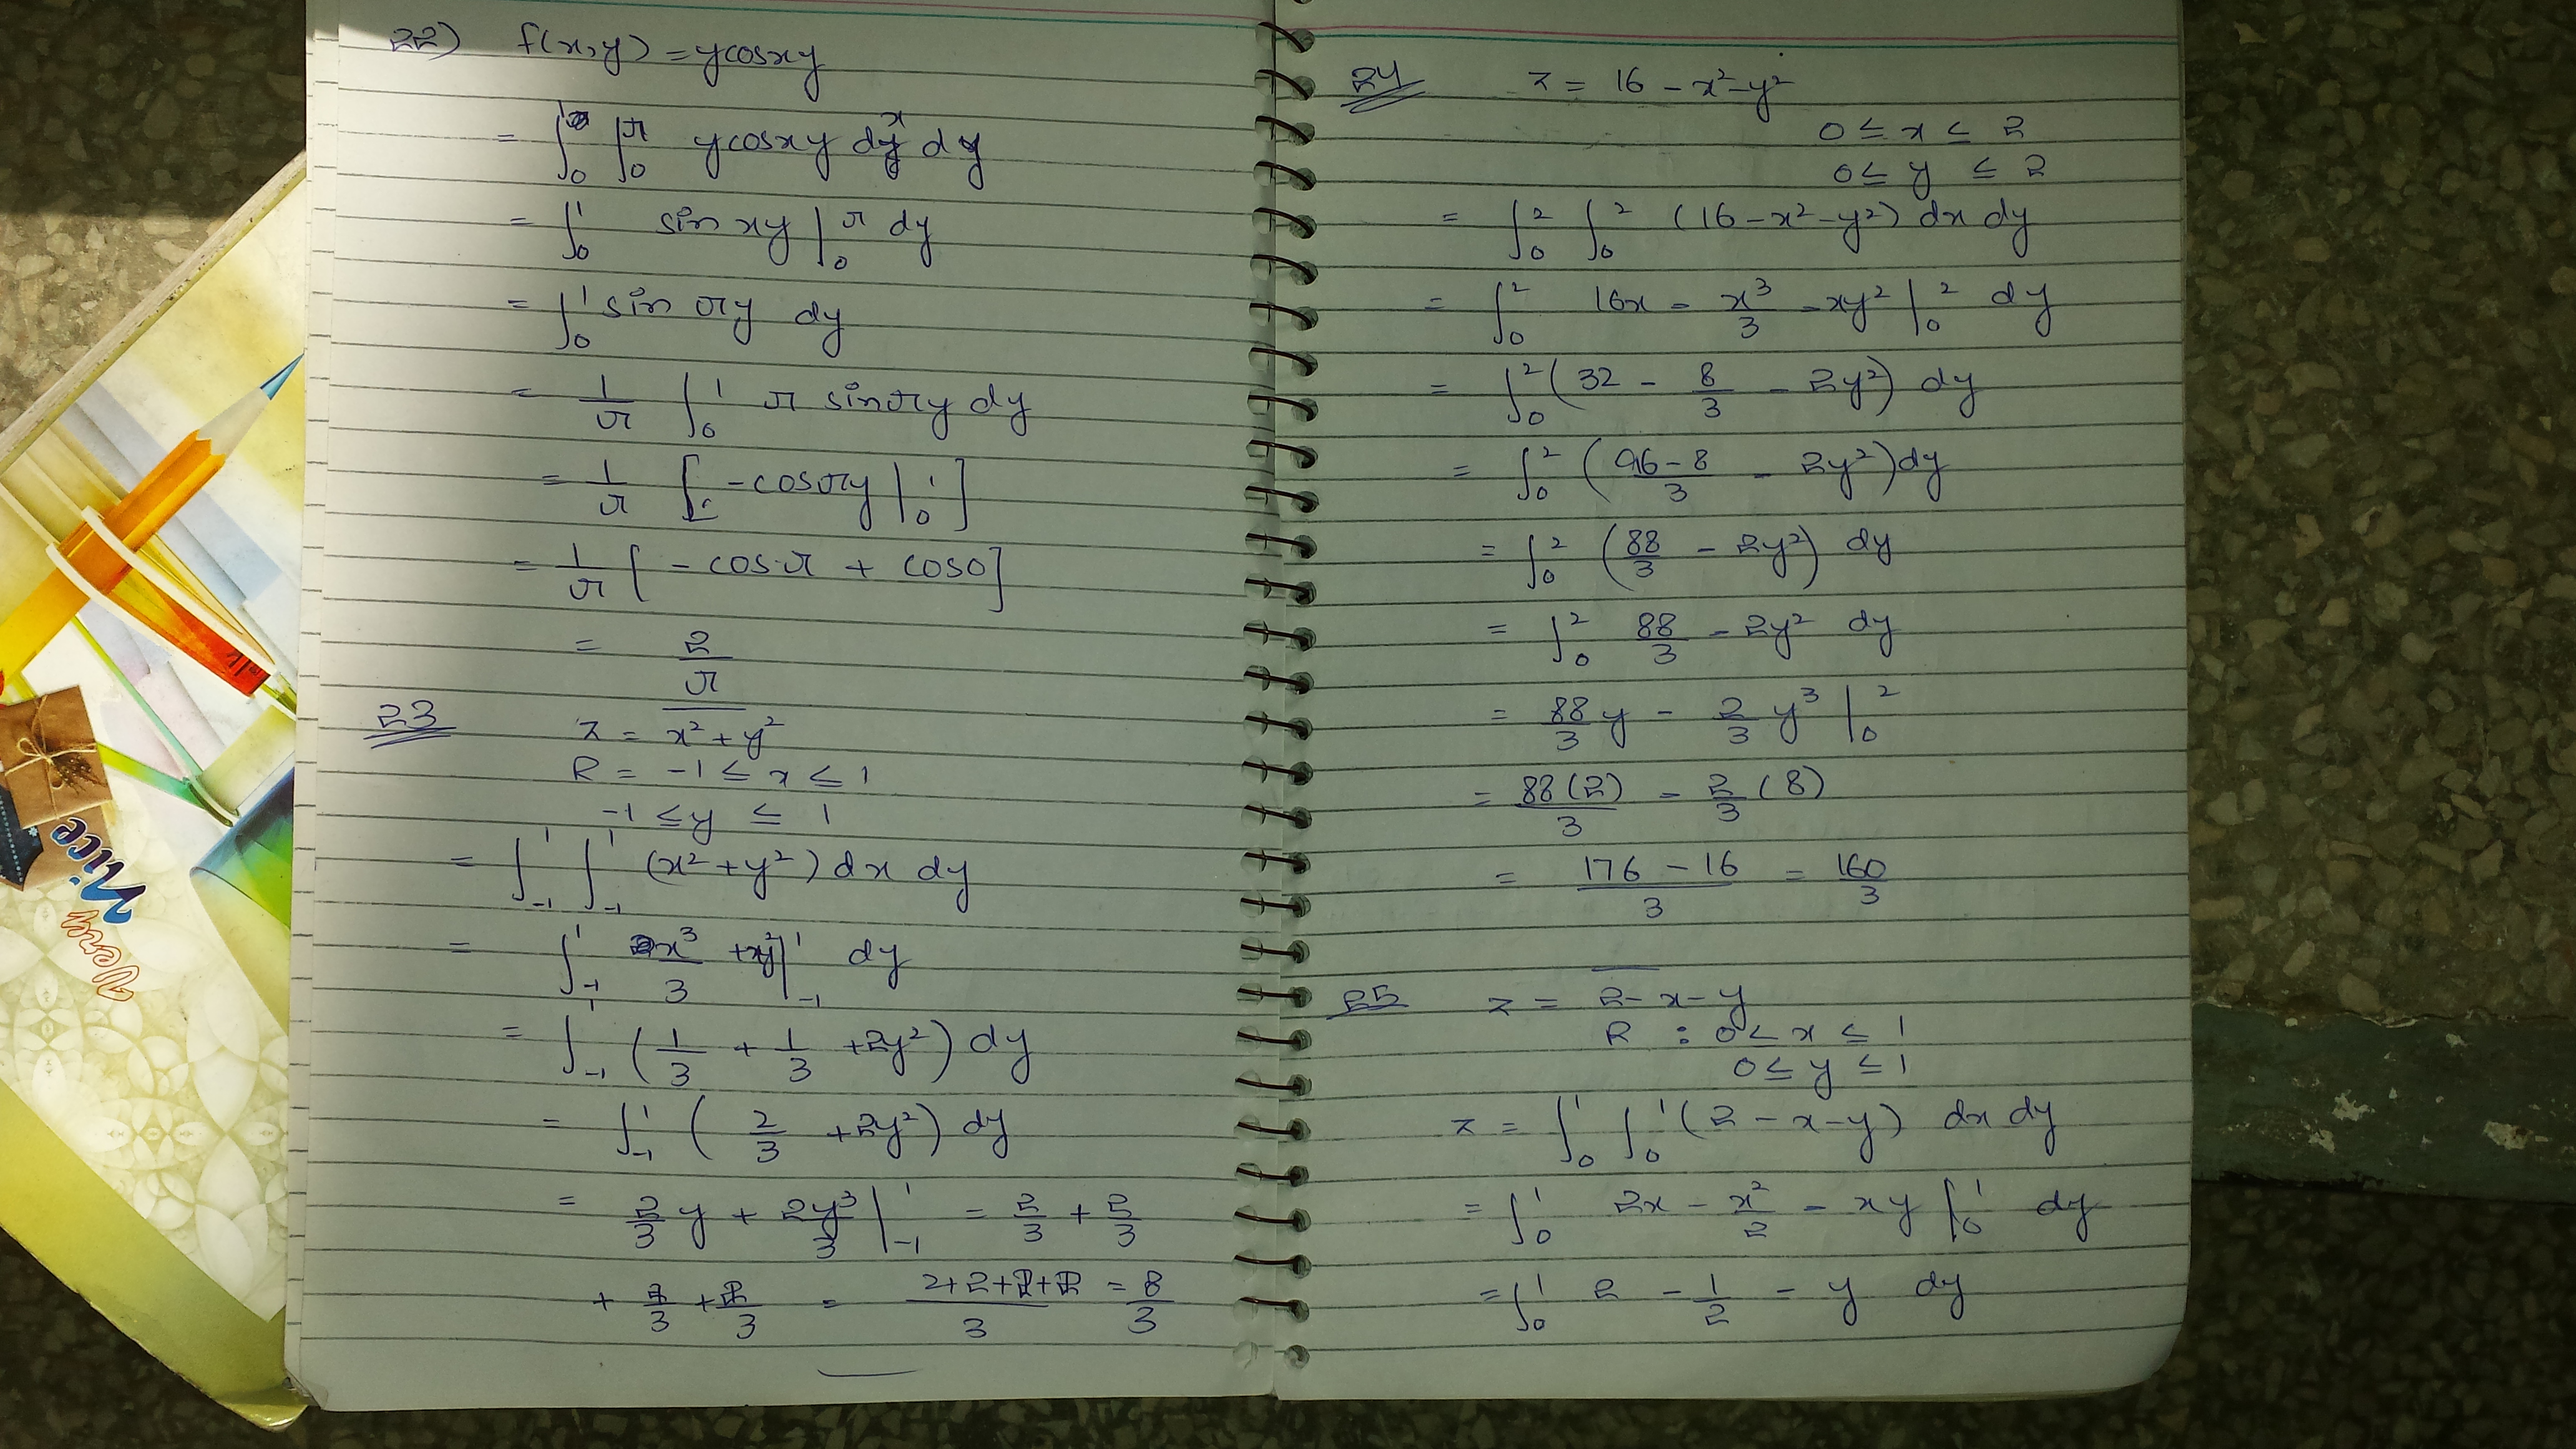 22) f(x,y) = ycosxy
= ∫₀¹ ∫₀^π ycosxy dx dy
= ∫₀¹ sin xy |₀^π dy
= ∫₀¹ sin πy dy
= 1/π ∫₀¹ π sinπy dy
= 1/π [ -cosπy |₀¹ ]
= 1/π [ - cosπ + cos0]
= 2/π
23 z = x² + y²
R = -1 ≤ x ≤ 1
-1 ≤ y ≤ 1
= ∫₋₁¹ ∫₋₁¹ (x² + y²) dx dy
= ∫₋₁¹ x³/3 + xy² |₋₁¹ dy
= ∫₋₁¹ (1/3 + 1/3 + 2y²) dy
= ∫₋₁¹ (2/3 + 2y²) dy
= 2/3 y + 2y³/3 |₋₁¹ = 2/3 + 2/3
+ 2/3 + 2/3 = (2+2+2+2)/3 = 8/3
24 z = 16 - x² - y²
0 ≤ x ≤ 2
0 ≤ y ≤ 2
= ∫₀² ∫₀² (16 - x² - y²) dx dy
= ∫₀² 16x - x³/3 - xy² |₀² dy
= ∫₀² (32 - 8/3 - 2y²) dy
= ∫₀² ((96-8)/3 - 2y²) dy
= ∫₀² (88/3 - 2y²) dy
= ∫₀² 88/3 - 2y² dy
= 88/3 y - 2/3 y³ |₀²
= 88(2)/3 - 2/3 (8)
= (176 - 16)/3 = 160/3
25 z = 2 - x - y
R : 0 < x ≤ 1
0 ≤ y ≤ 1
z = ∫₀¹ ∫₀¹ (2 - x - y) dx dy
= ∫₀¹ 2x - x²/2 - xy |₀¹ dy
= ∫₀¹ 2 - 1/2 - y dy
Very
Nice